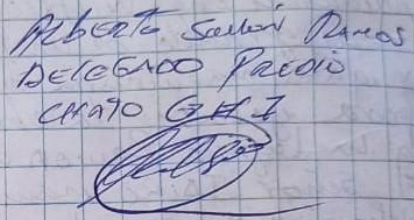 Alberto Ramos
DELEGADO PREDIO
CHAYO G H I